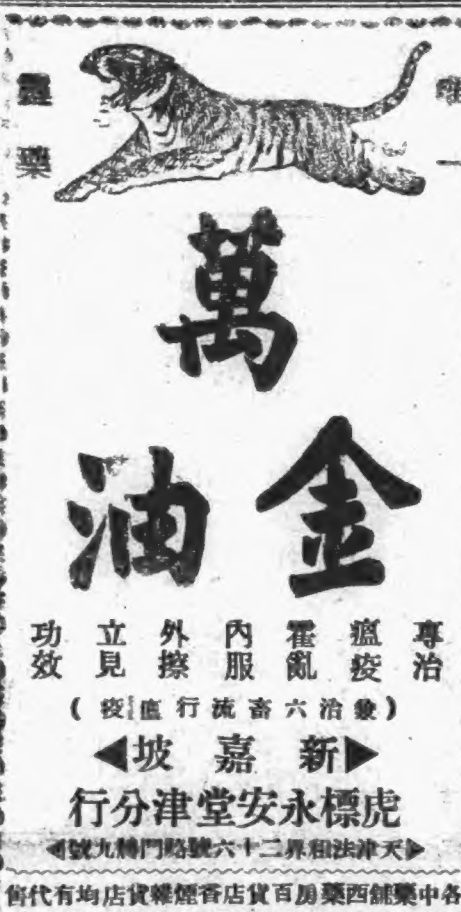 唯一
靈藥
萬
金油
專治
瘟疫
霍亂
內服
外擦
立見
功效
(兼治六畜流行瘟疫)
新嘉坡
虎標永安堂津分行
天津法租界二十六號路門牌九號
各中藥舖西藥房百貨店香煙雜貨店均有代售